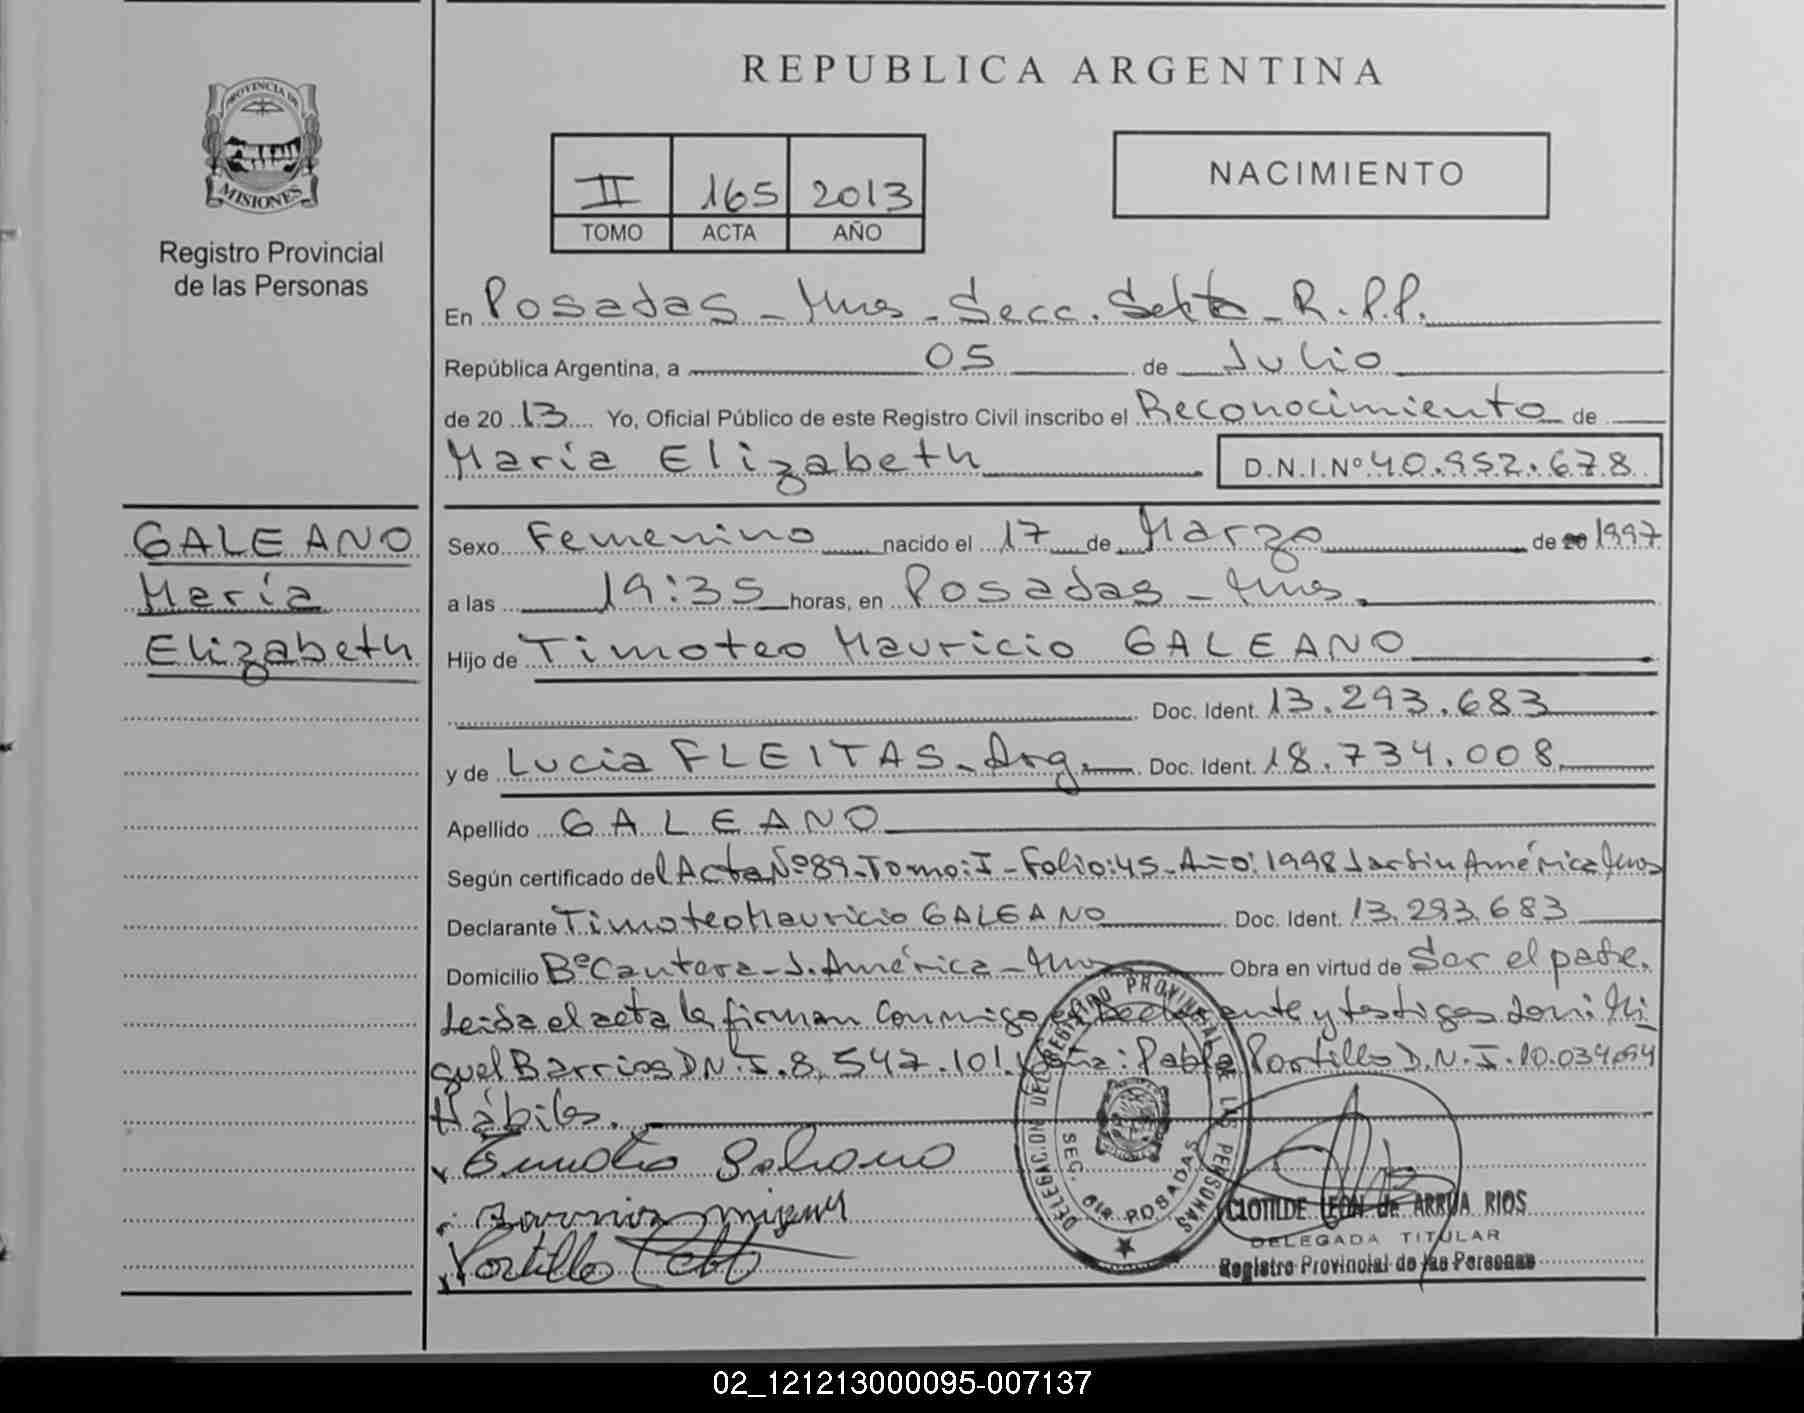 REPUBLICA ARGENTINA
PROVINCIA DE
MISIONES
Registro Provincial
de las Personas
II 165 2013
TOMO ACTA AÑO
NACIMIENTO
En Posadas - Mnes - Secc. Sexta - R.P.P.
República Argentina, a 05 de Julio
de 2013 Yo, Oficial Público de este Registro Civil inscribo el Reconocimiento de
María Elizabeth D.N.I.Nº 40.952.678
GALEANO
María
Elizabeth
Sexo Femenino nacido el 17 de Marzo de 20 1997
a las 19:35 horas, en Posadas - Mnes.
Hijo de Timoteo Mauricio GALEANO
Doc. Ident. 13.293.683
y de Lucia FLEITAS - Arg. Doc. Ident. 18.734.008
Apellido GALEANO
Según certificado del Acta Nº 89 - Tomo: I - Folio: 45 - Año: 1998 Jardin América Mnes
Declarante Timoteo Mauricio GALEANO Doc. Ident. 13.293.683
Domicilio Bº Cantera - J. América - Mnes Obra en virtud de Ser el padre.
Leida el acta la firman Conmigo el Declarante y testigos Mi
guel Barrios D.N.I. 8.547.101. Pabla Portillo D.N.I. 10.034.
Hábiles.
Galeano
Barrios Miguel
Portillo
DELEGACION DEL REGISTRO PROVINCIAL DE LAS PERSONAS
SEC. 6ta POSADAS
CLOTILDE LEON de ARRUA RIOS
DELEGADA TITULAR
Registro Provincial de las Personas
02_121213000095-007137